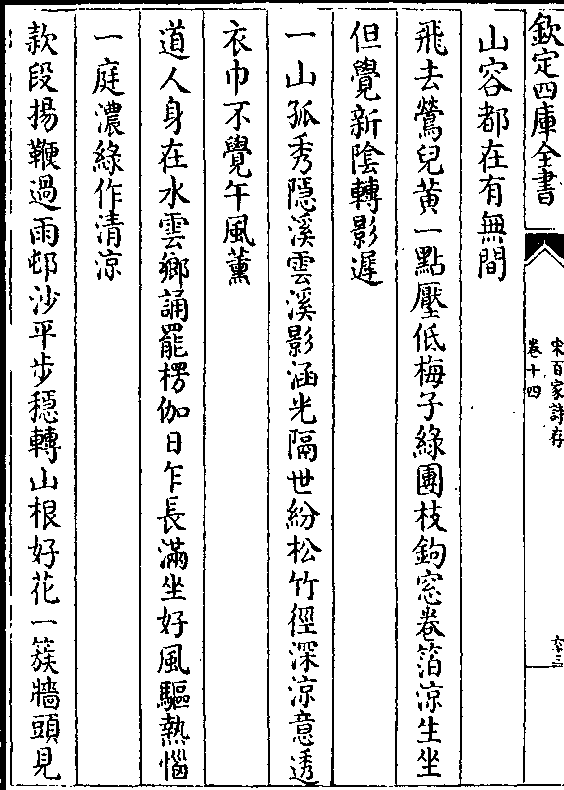 欽定四庫全書
宋百家詩存
卷十四
六十三
山容都在有無間
飛去鶯兒黄一點壓低梅子綠團枝鉤窓卷箔涼生坐
但覺新陰轉影遲
一山孤秀隱溪雲溪影涵光隔世紛松竹徑深涼意透
衣巾不覺午風薰
道人身在水雲鄉誦罷楞伽日乍長滿坐好風驅熱惱
一庭濃綠作清涼
款段揚鞭過雨邨沙平步穩轉山根好花一簇牆頭見